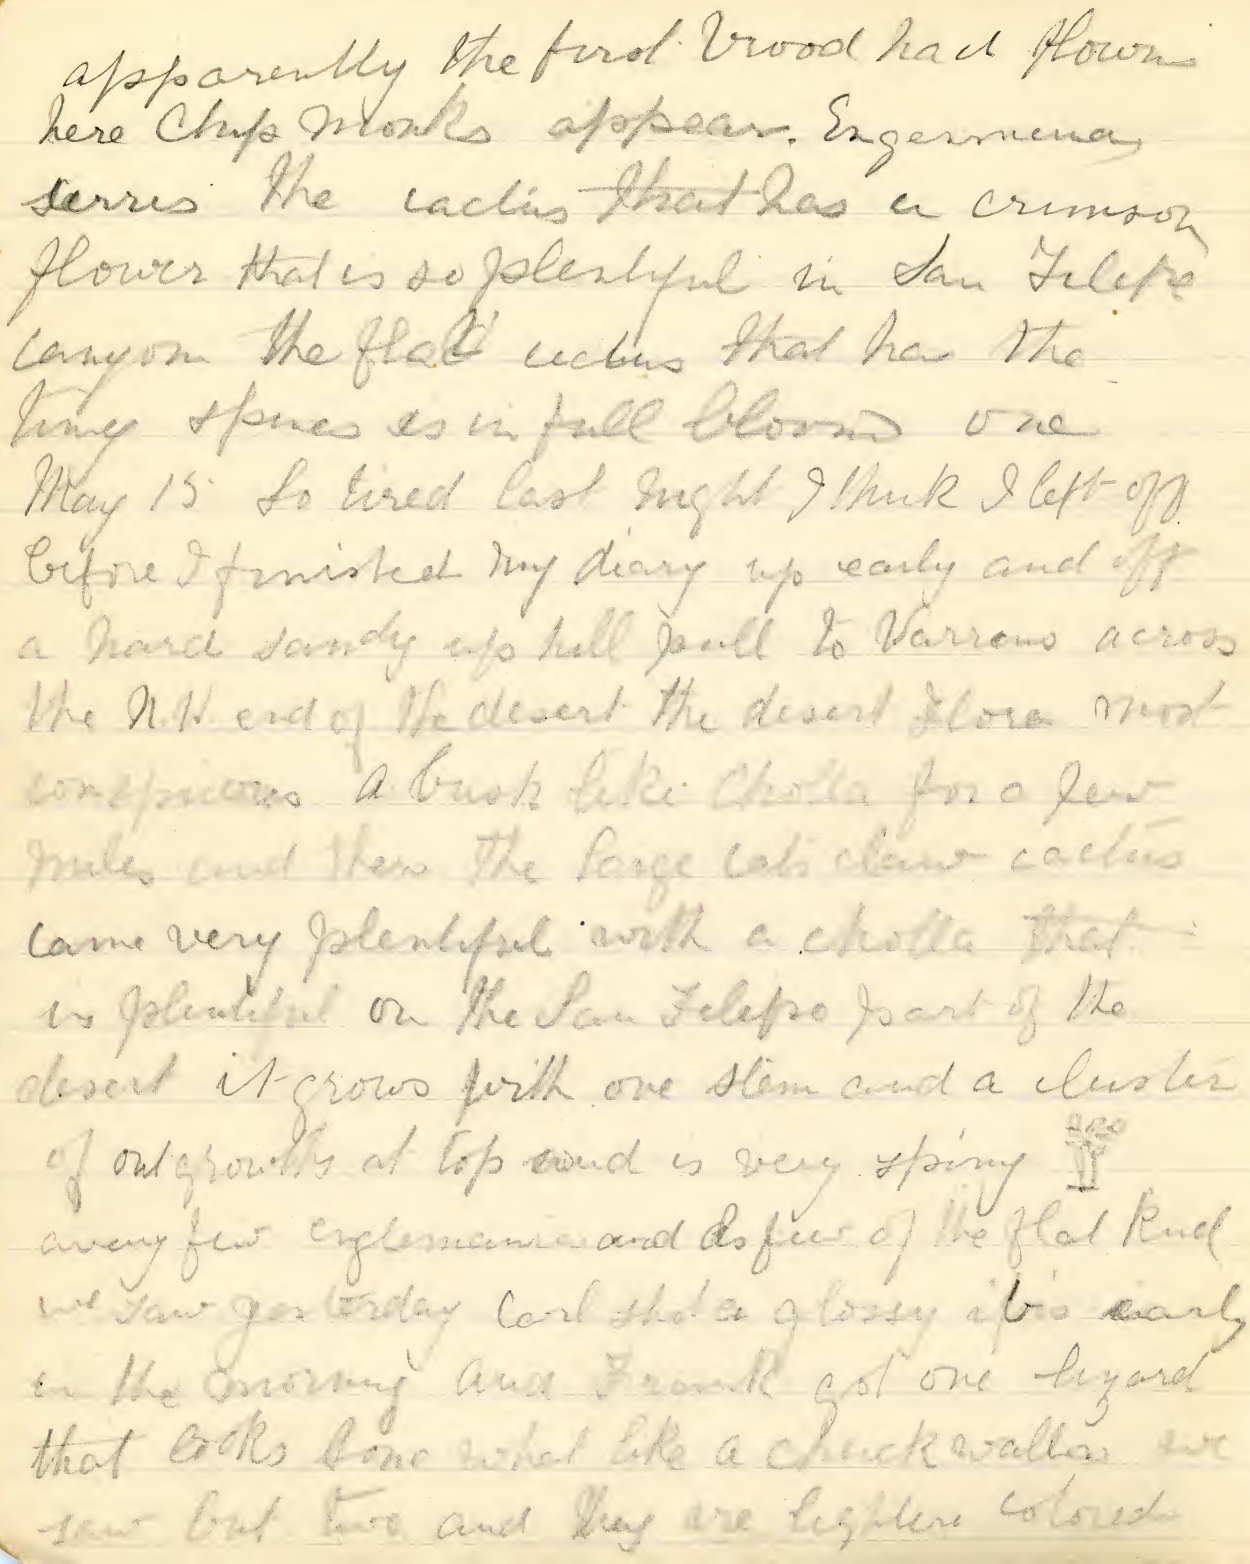 apparently the first brood had flown
here Chip Monks appear. Engermena
serris the cactus that has a crimson
flower that is so plentiful in San Felepe
canyon the flat cactus that has the
tiny spines is in full bloom one
May 15 So tired last night I think I left off
before I finished my diary up early and off
a hard sandy up hill pull to Varrens across
the N.W. end of the desert the desert Flora most
conspicuous a bush like Cholla for a few
miles and then the large cats claw cactus
came very plentiful with a cholla that
is plentiful on the San Felepe part of the
desert it grows with one stem and a cluster
of outgrowths at top and is very spiny
a very few englemania and a few of the flat kind
we saw yesterday Carl shot a glossy ibis early
in the morning and Frank got one lizard
that looks some what like a chuckwalla we
saw but two and they are lighter colored